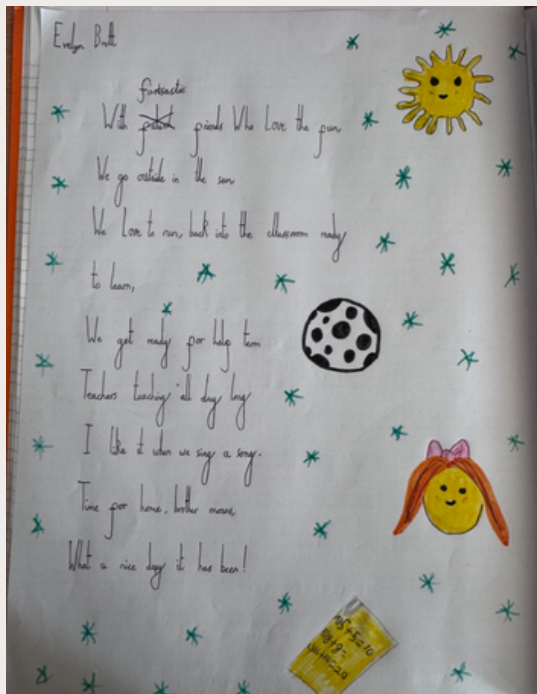 Evelyn Britt
fantsastic
With friends Who Love the fun
We go outside in the sun
We Love to run, back into the classroom ready
to learn,
We get ready for help term
Teachers teaching all day long
I like it when we sing a song.
Time for home, brother moans,
What a nice day it has been!
5+5=10
8+8=
10+10=20